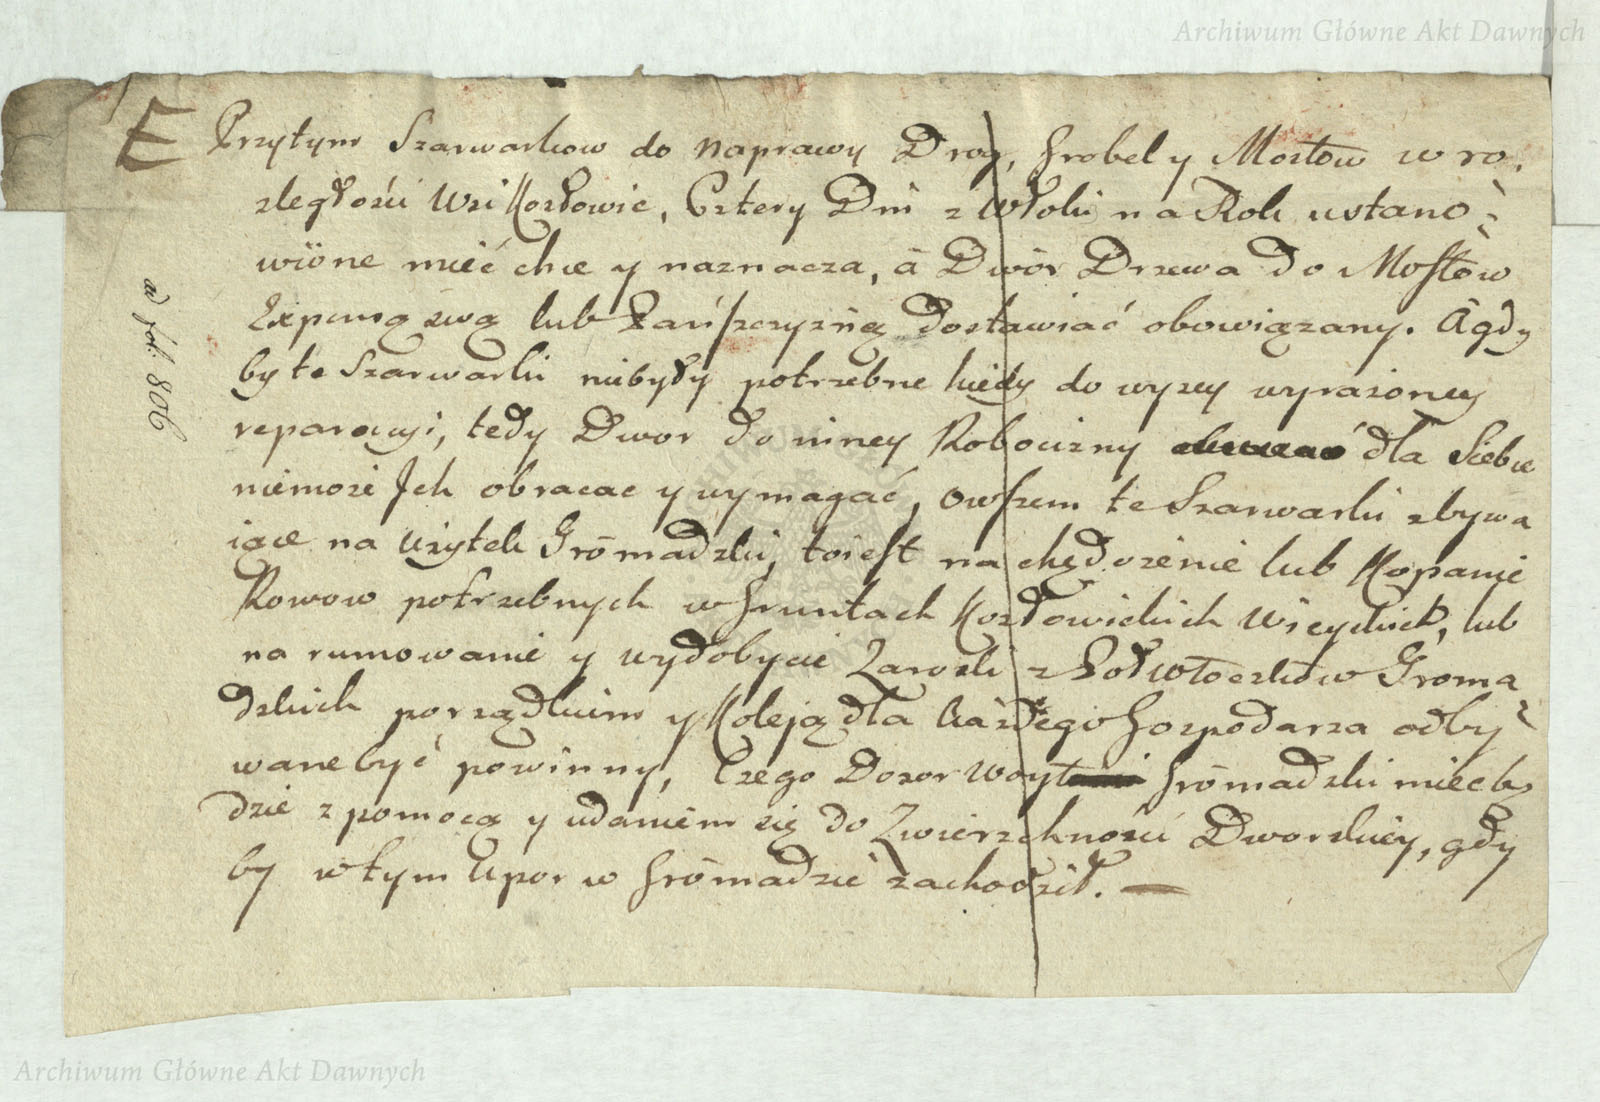 Archiwum Główne Akt Dawnych
E Przytym Szarwarkow do naprawy Drog, Grobel y Mostow w ro.
zległości Wsi Kozłowic, Cztery Dni z Włoki na Rok ustano
wione mieć chce y naznacza, à Dwór Drzewa do Mostów
Expensą swą lub Pańszczyzną dostawiać obowiązany. A gdy
by te Szarwarki niebyły potrzebne kiedy do wyzey wyrażoney
reparacyi, tedy Dwor do inney Robocizny dla Siebie
niemoze Ich obracac y wymagać, owszem te Szarwarki zbywa
iące na użytek Gromadzki, toiest na chędożenie lub Kopanie
Rowow potrzebnych w Gruntach Kozłowickich Wieyskich, lub
na rumowanie y wydobycie Zarośli z Połwłoczków Groma
dzkich porządkiem y Koleją dla każdego Gospodarza odby
wane być powinny, Czego Dozor Woyt Gromadzki miec bę
dzie z pomocą y udaniem się do Zwierzchności Dworskiey, gdy
by wtym Upor w Gromadzie zachodził. —
ad fol: 806
Archiwum Główne Akt Dawnych